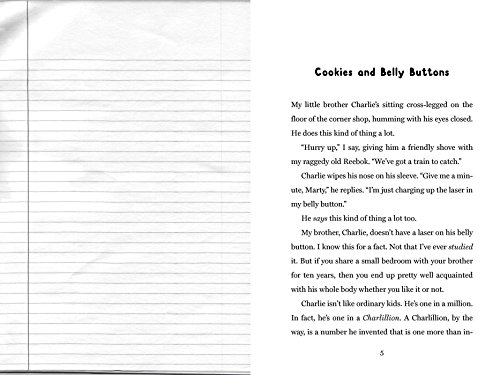 Cookies and Belly Buttons
My little brother Charlie's sitting cross-legged on the
floor of the corner shop, humming with his eyes closed.
He does this kind of thing a lot.
"Hurry up," I say, giving him a friendly shove with
my raggedy old Reebok. "We've got a train to catch."
Charlie wipes his nose on his sleeve. "Give me a min-
ute, Marty," he replies. "I'm just charging up the laser in
my belly button."
He says this kind of thing a lot too.
My brother, Charlie, doesn't have a laser on his belly
button. I know this for a fact. Not that I've ever studied
it. But if you share a small bedroom with your brother
for ten years, then you end up pretty well acquainted
with his whole body whether you like it or not.
Charlie isn't like ordinary kids. He's one in a million.
In fact, he's one in a Charlillion. A Charlillion, by the
way, is a number he invented that is one more than in-
5